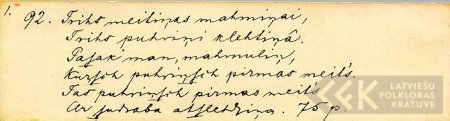 1.
92. Trihs meitiņas mahmiņai,
Trihs puhriņi klehtiņâ.
Pasak' man, mahmuliņ,
Kursch puhriņsch pirmas meit's.
Tas puhriņsch pirmas meit's
Ar sudraba atslehdziņa. 75 p.
LATVIEŠU
FOLKLORAS
KRĀTUVE